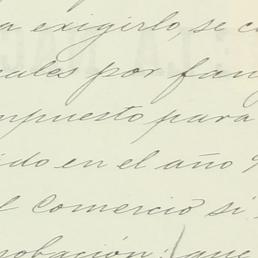 a exigirlo, se c
ales por fan
mpuesto para
ido en el año 9
l comercio si
robación; que